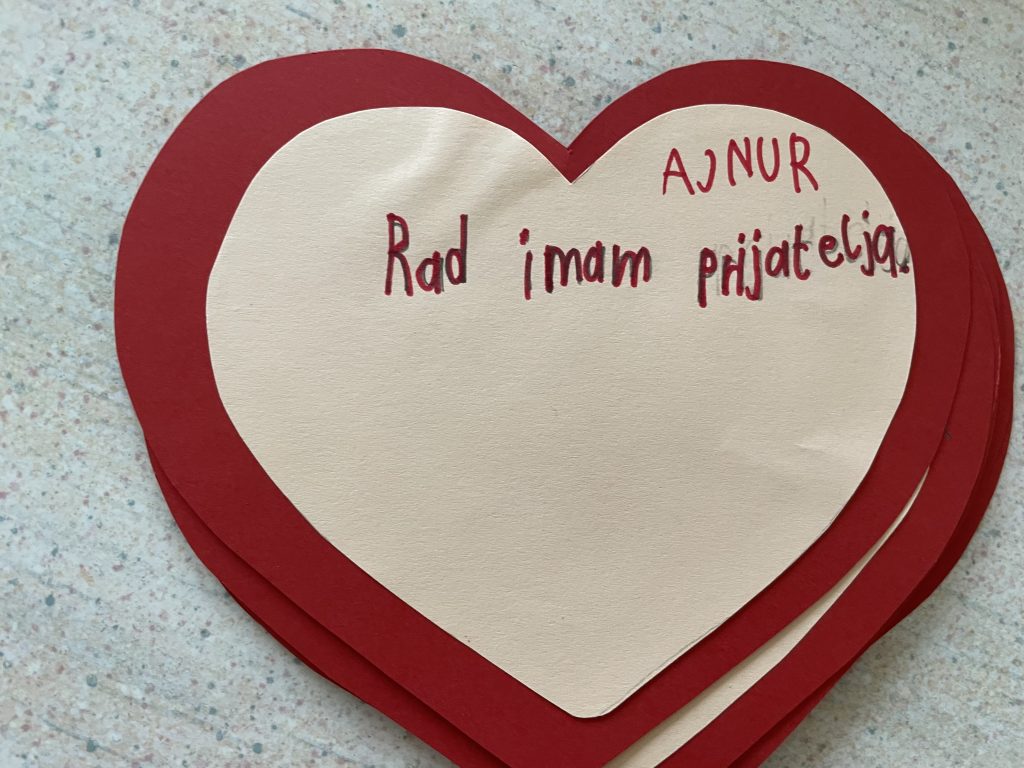 AJNUR
Rad imam prijatelja.